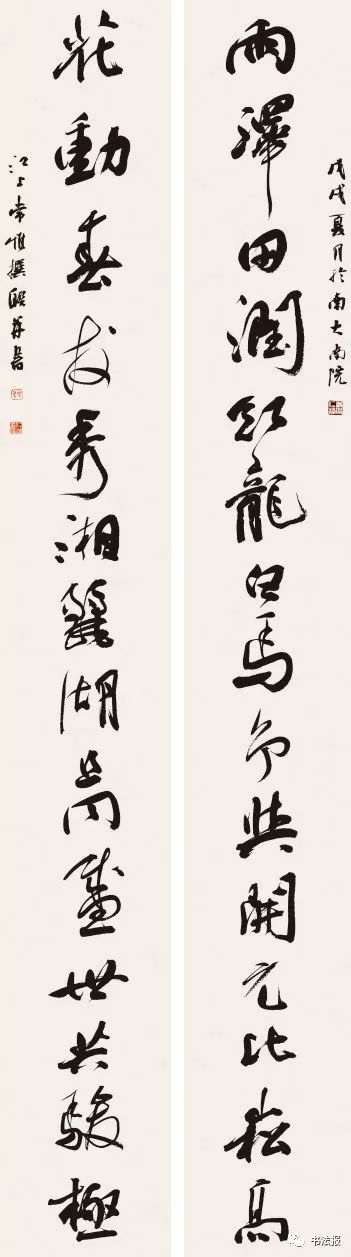 戊戌夏月於南大南院
雨澤田潤龍白馬與開元比崧高
花動春秀湘湖盛世共駿極
江上常惟撰聯并書
书法报